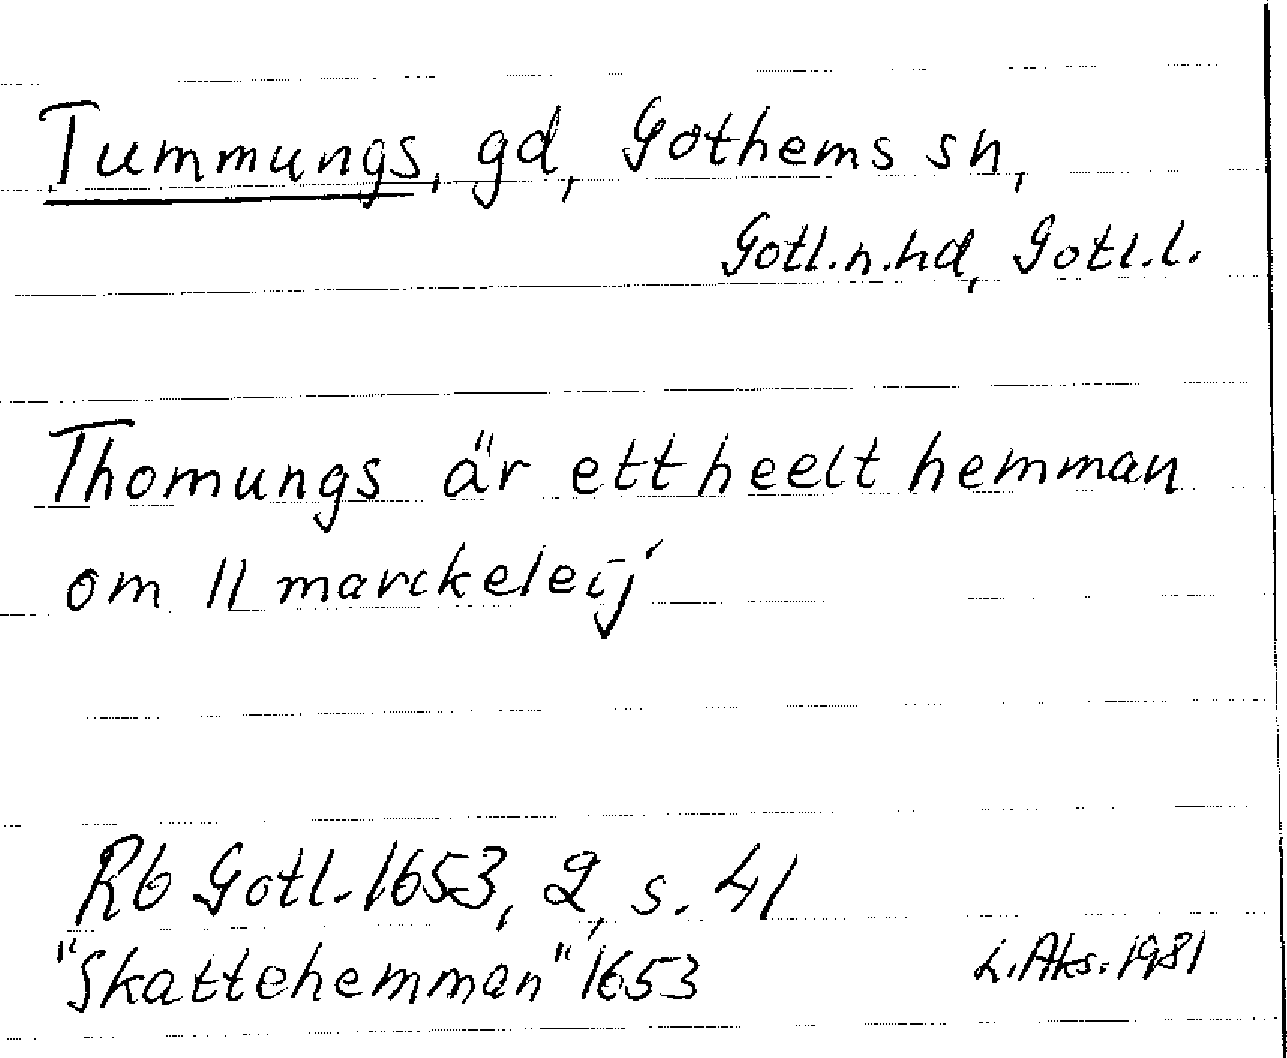 Tummungs, gd, Gothems sn,
Gotl.n.hd, Gotl.l.
Thomungs är ett heelt hemman
om 11 marckeleij
Rb Gotl. 1653, 2, s. 41
"Skattehemman" 1653
L. Aks. 1981